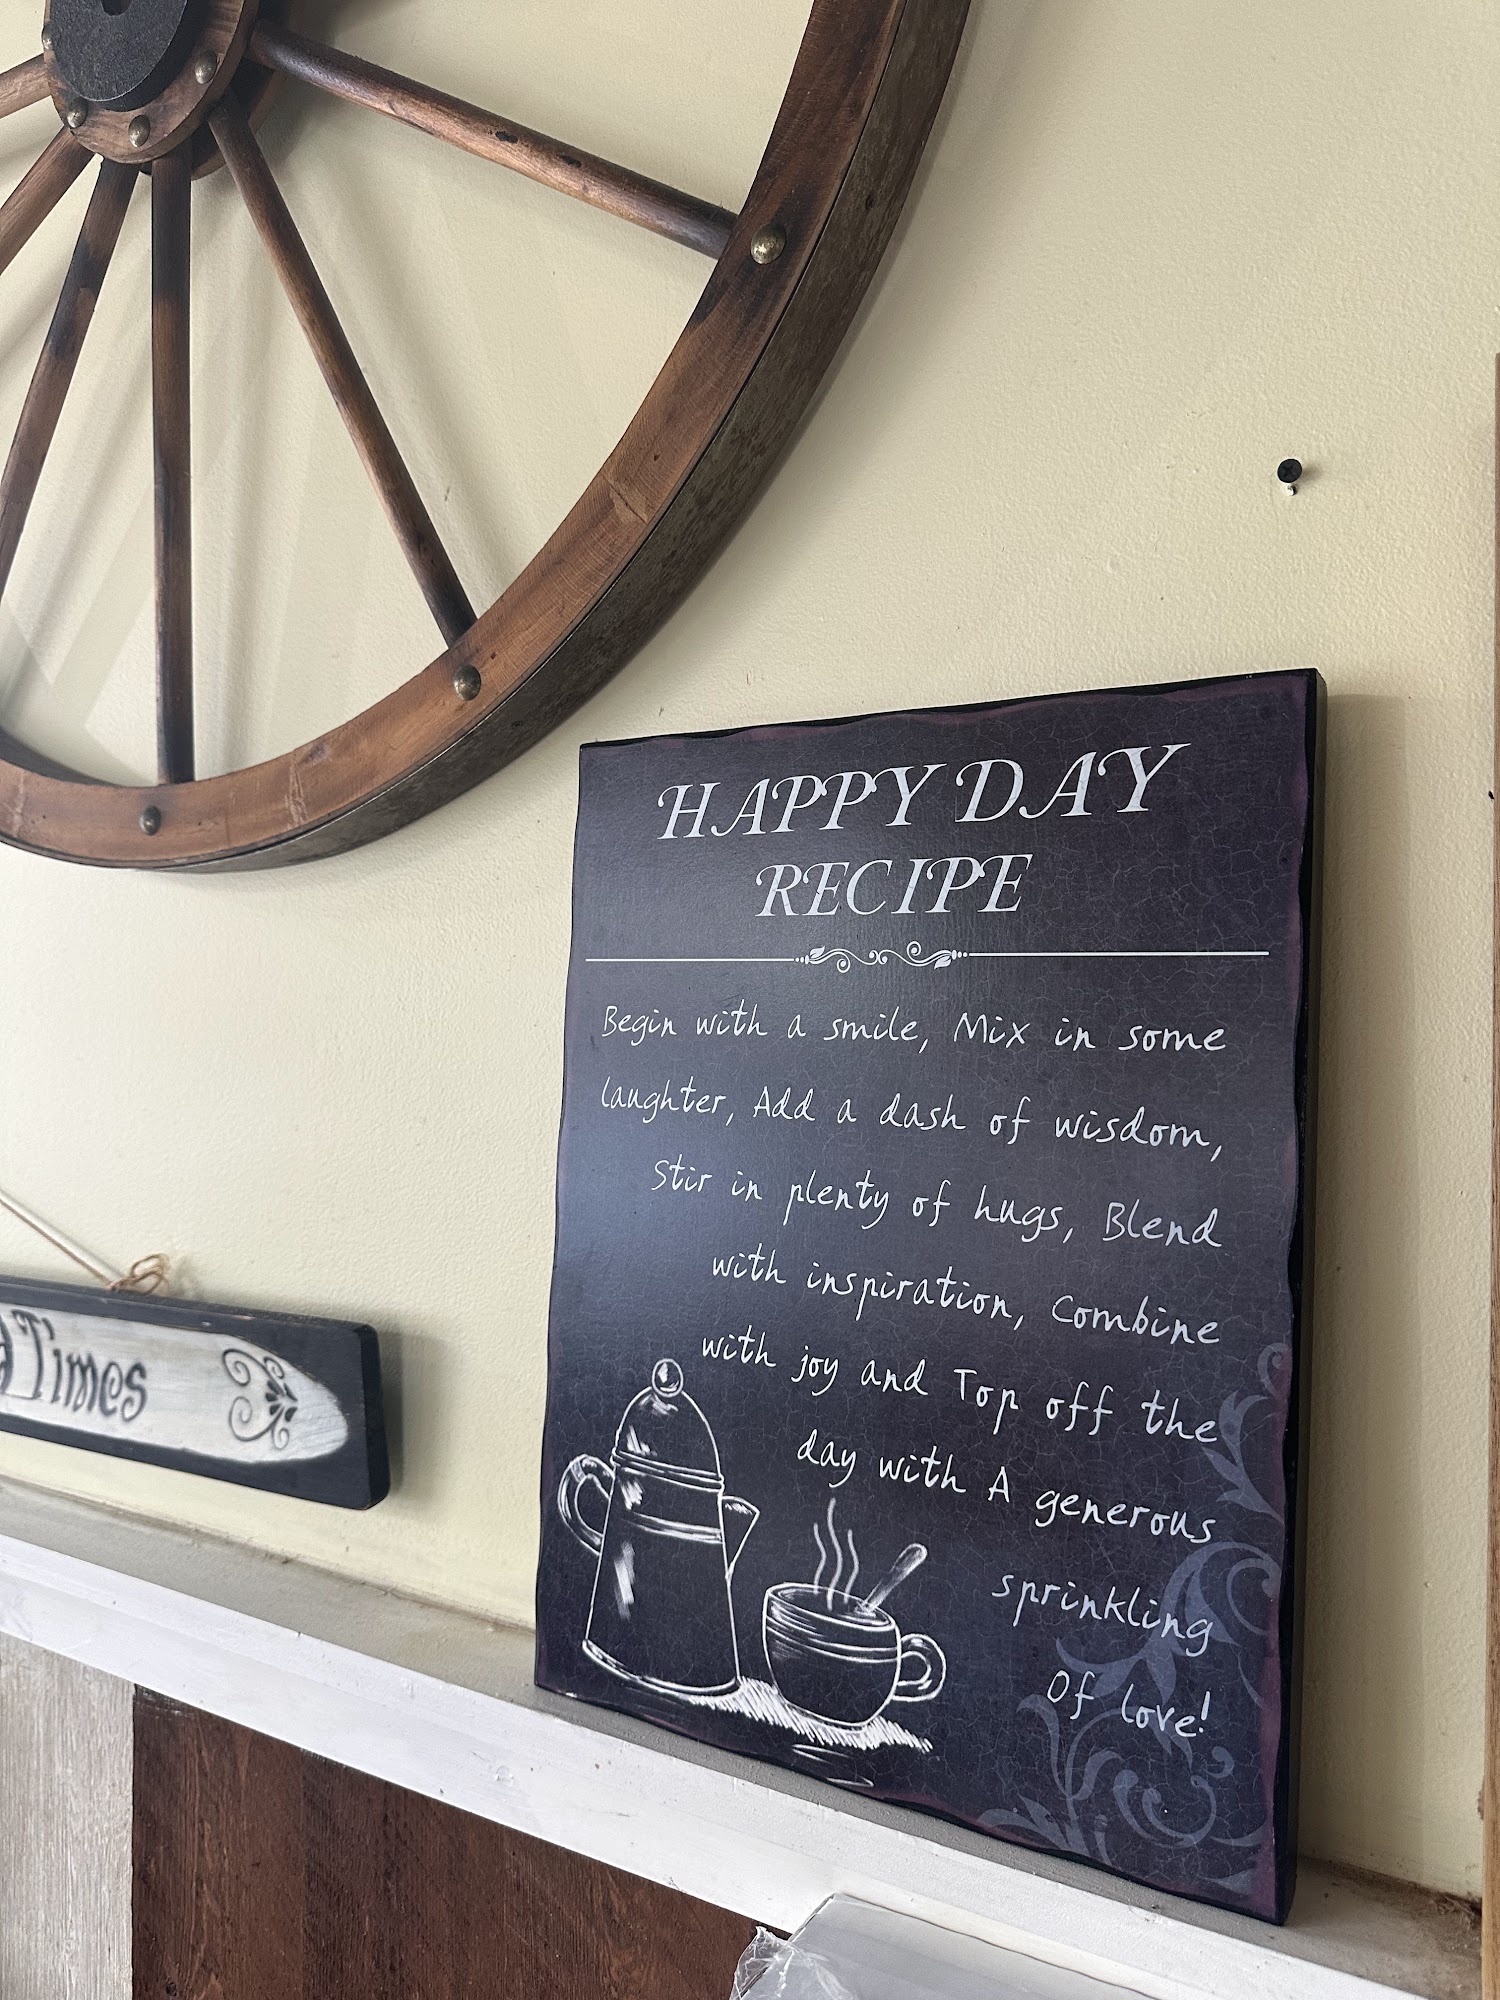 HAPPY DAY
RECIPE
Begin with a smile, Mix in some
laughter, Add a dash of wisdom,
Stir in plenty of hugs, Blend
with inspiration, Combine
with joy and Top off the
day with A generous
sprinkling
Of love!
Times